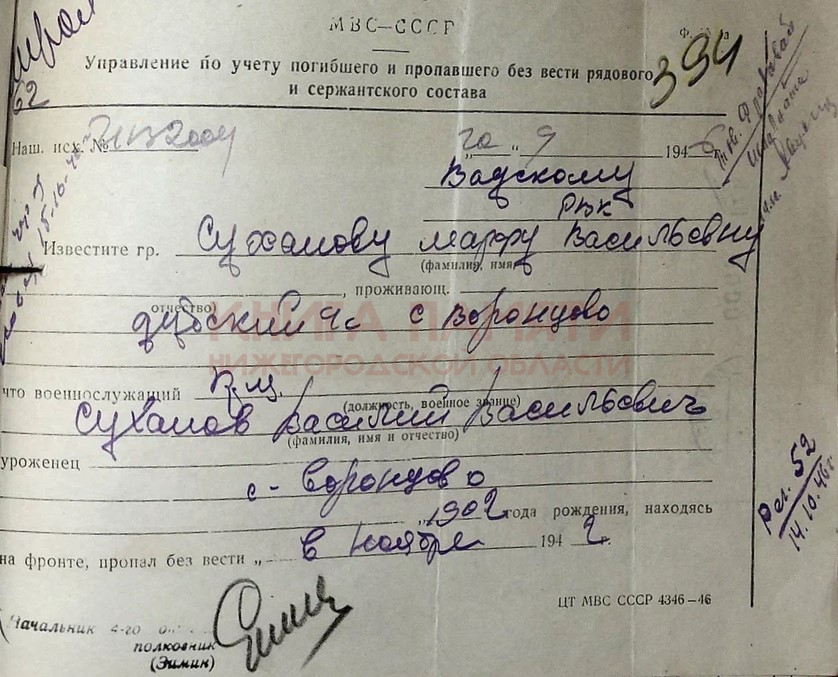 МВС-СССР
Управление по учету погибшего и пропавшего без вести рядового
и сержантского состава
394
62
Наш. исх. №
"20" 9 1946 г.
Вадскому
РВК
Известите гр. Суханову Марфу Васильевну
(фамилия, имя,
отчество)
, проживающ.
с Воронцово
КНИГА ПАМЯТИ
НИЖЕГОРОДСКОЙ ОБЛАСТИ
что военнослужащий
(должность, военное звание)
Суханов Василий Васильевич
(фамилия, имя и отчество)
уроженец
с- Воронцово
1902 года рождения, находясь
на фронте, пропал без вести „ в ноябре 1942 г.
Рег. 52
14.10.46г.
ЦТ МВС СССР 4346—46
Начальник 4-го
полковник
(Зимин)